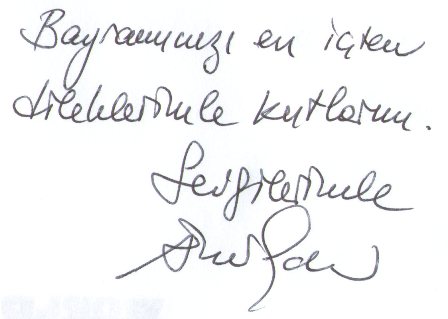 Bayramınızı en içten
dileklerimle kutlarım.
Sevgilerimle